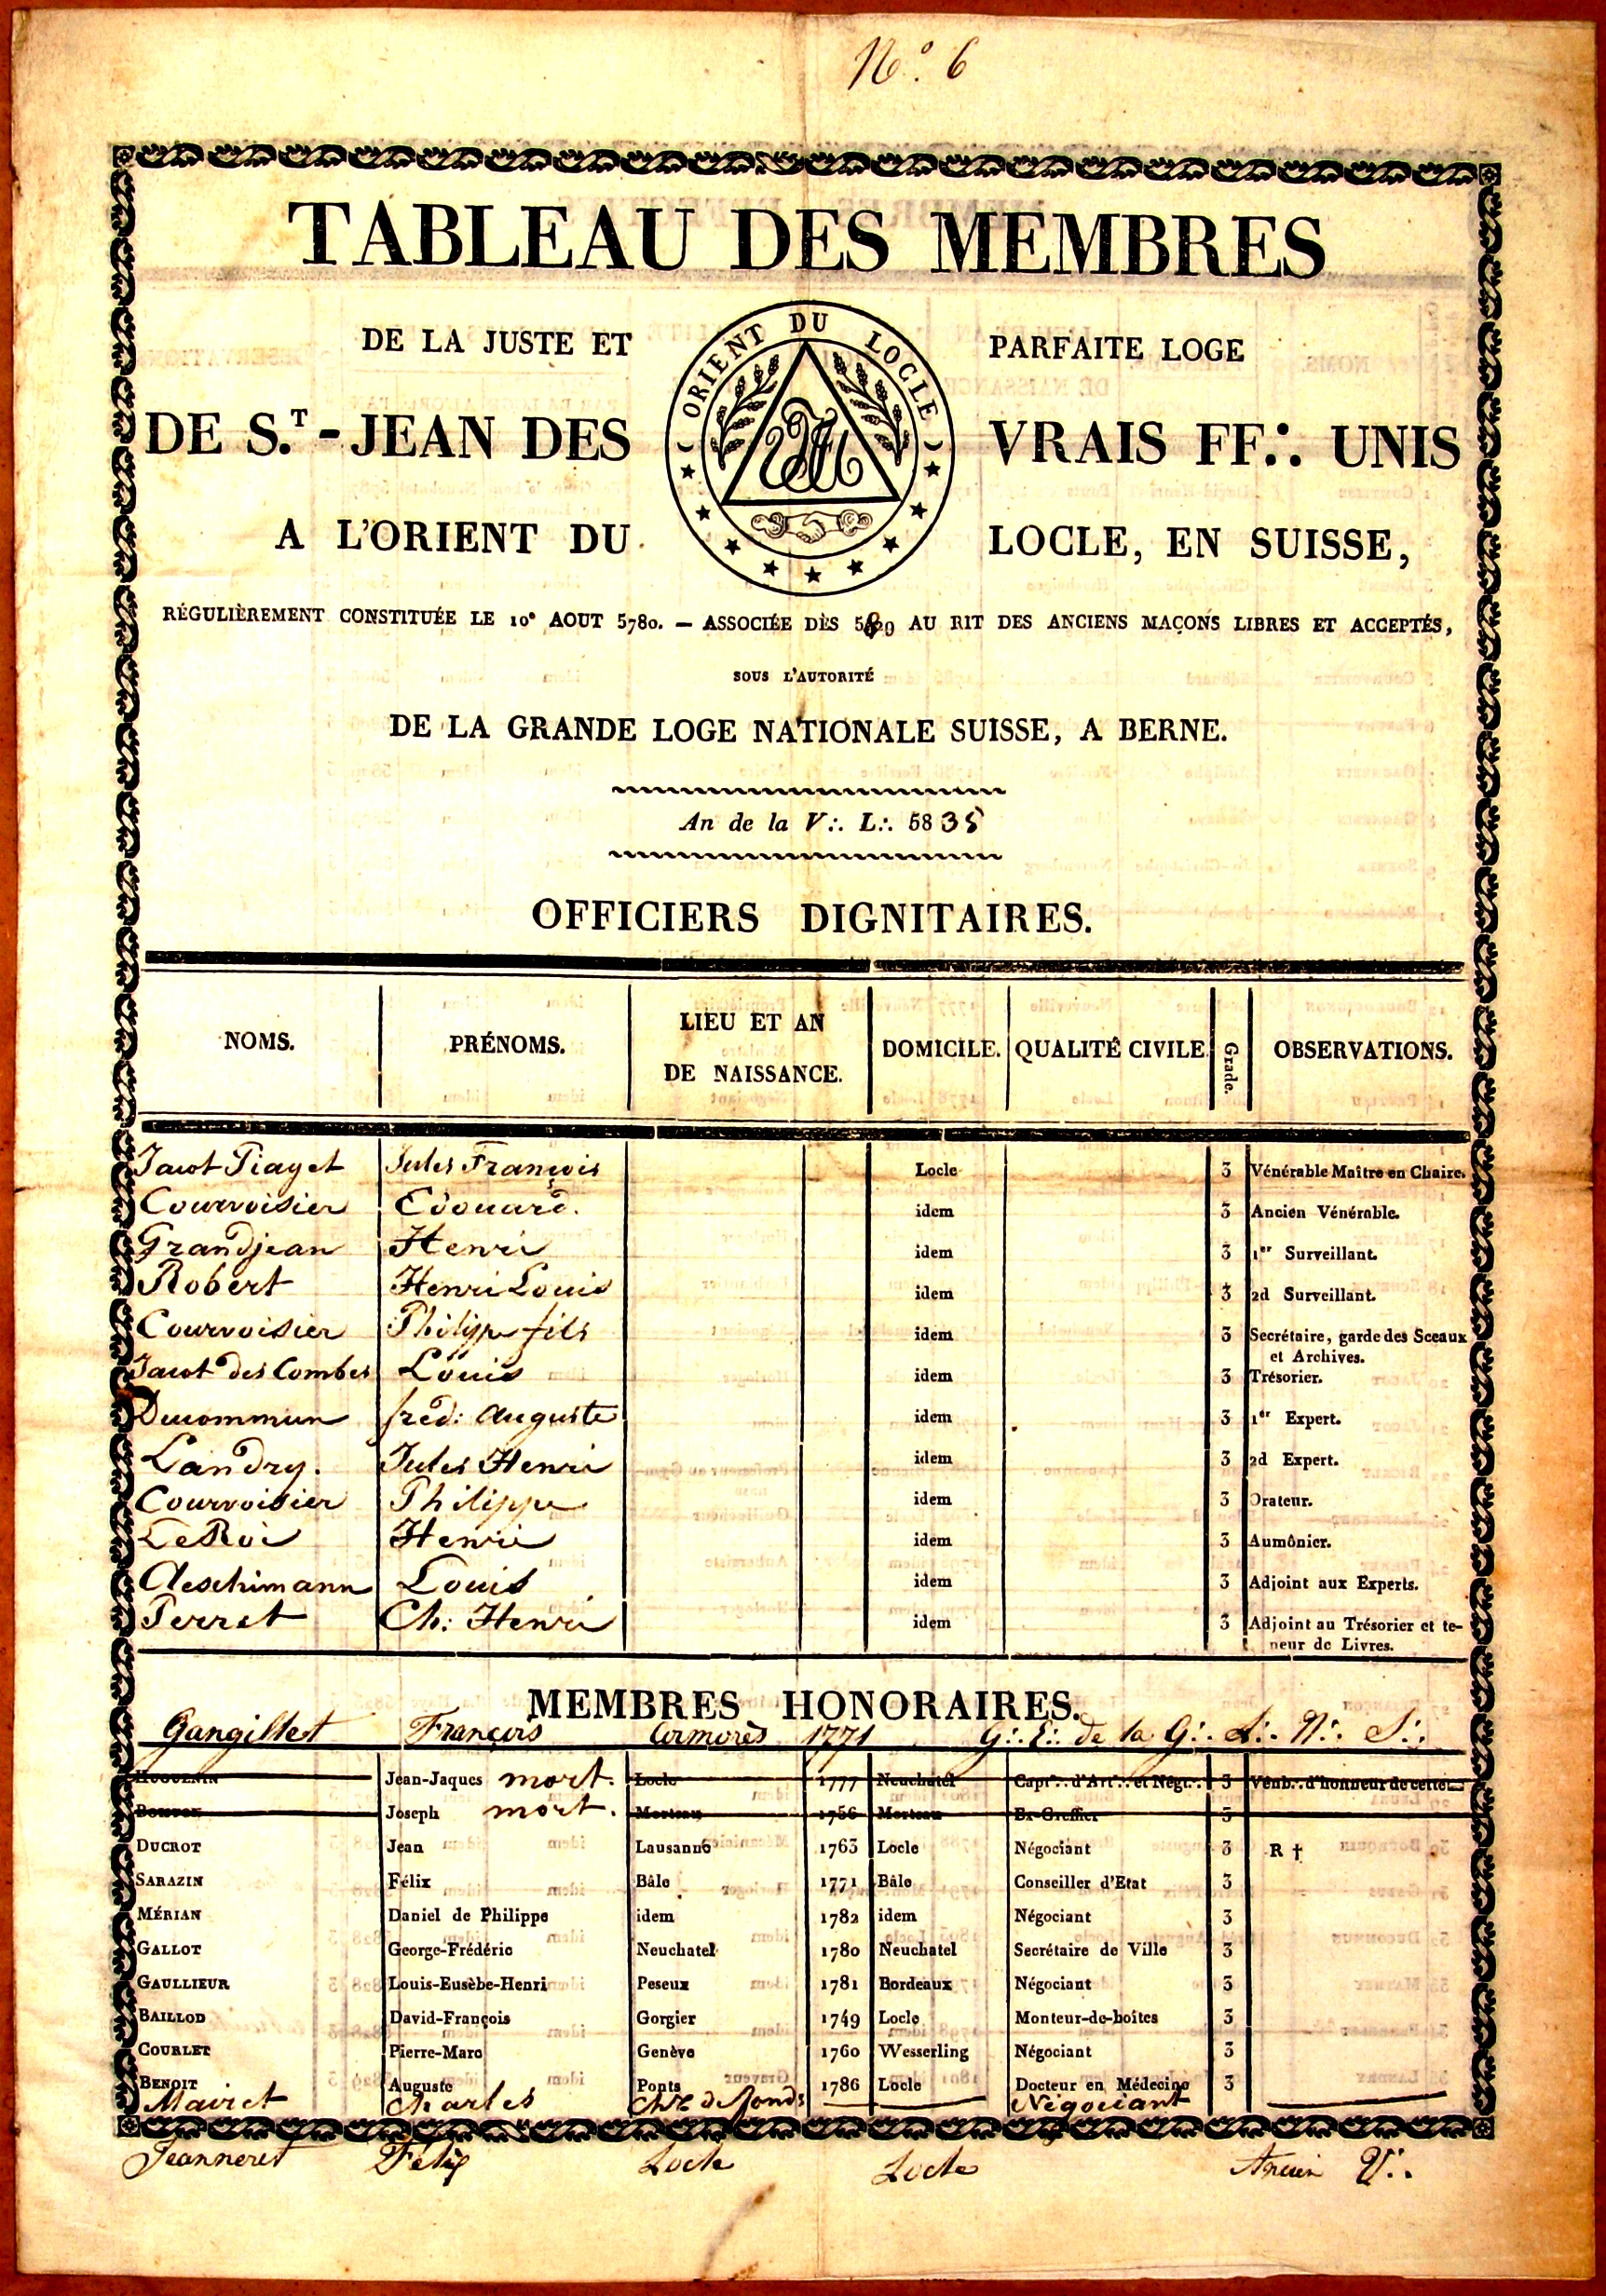 N.° 6
TABLEAU DES MEMBRES
DE LA JUSTE ET PARFAITE LOGE
ORIENT DU LOCLE
DE S.T-JEAN DES VRAIS FF∴ UNIS
A L'ORIENT DU LOCLE, EN SUISSE,
RÉGULIÈREMENT CONSTITUÉE LE 10e AOUT 5780. — ASSOCIÉE DÈS 5820 AU RIT DES ANCIENS MAÇONS LIBRES ET ACCEPTÉS,
SOUS L'AUTORITÉ
DE LA GRANDE LOGE NATIONALE SUISSE, A BERNE.
An de la V∴ L∴ 5835
OFFICIERS DIGNITAIRES.
NOMS. PRÉNOMS. LIEU ET AN DE NAISSANCE. DOMICILE. QUALITÉ CIVILE Grade. OBSERVATIONS.
Jacot Piaget Jules François Locle 3 Vénérable Maître en Chaire.
Courvoisier Edouard. idem 3 Ancien Vénérable.
Grandjean Henri idem 3 1er Surveillant.
Robert Henri Louis idem 3 2d Surveillant.
Courvoisier Philippe fils idem 3 Secrétaire, garde des Sceaux
et Archives.
Jacot des Combes Louis idem 3 Trésorier.
Ducommun fréd: Auguste idem 3 1er Expert.
Landry. Jules Henri idem 3 2d Expert.
Courvoisier Philippe idem 3 Orateur.
LeRoi Henri idem 3 Aumônier.
Aeschimann Louis idem 3 Adjoint aux Experts.
Perret Ch: Henri idem 3 Adjoint au Trésorier et te-
neur de Livres.
MEMBRES HONORAIRES.
Gangillet François Cormorès 1771 G∴ E∴ de la G∴ L∴ N∴ S∴
HUGUENIN Jean-Jaques mort. Locle 1777 Neuchatel Capt∴ d'Art∴ et Négt∴ 3 Vénb∴ d'honneur de cette
Joseph mort. Morteau 1756 Morteau Ex-Greffier 3
DUCROT Jean Lausanne 1763 Locle Négociant 3 R †
SARAZIN Félix Bâle 1771 Bâle Conseiller d'Etat 3
MÉRIAN Daniel de Philippe idem 1782 idem Négociant 3
GALLOT George-Frédéric Neuchatel 1780 Neuchatel Secrétaire de Ville 3
GAULLIEUR Louis-Eusèbe-Henri Peseux 1781 Bordeaux Négociant 3
BAILLOD David-François Gorgier 1749 Locle Monteur-de-boîtes 3
COURLET Pierre-Marc Genève 1760 Wesserling Négociant 3
BENOIT Auguste Ponts 1786 Locle Docteur en Médecine 3
Mairet Charles Chx de Fonds Négociant
Jeanneret Félix Locle Locle Ancien V∴